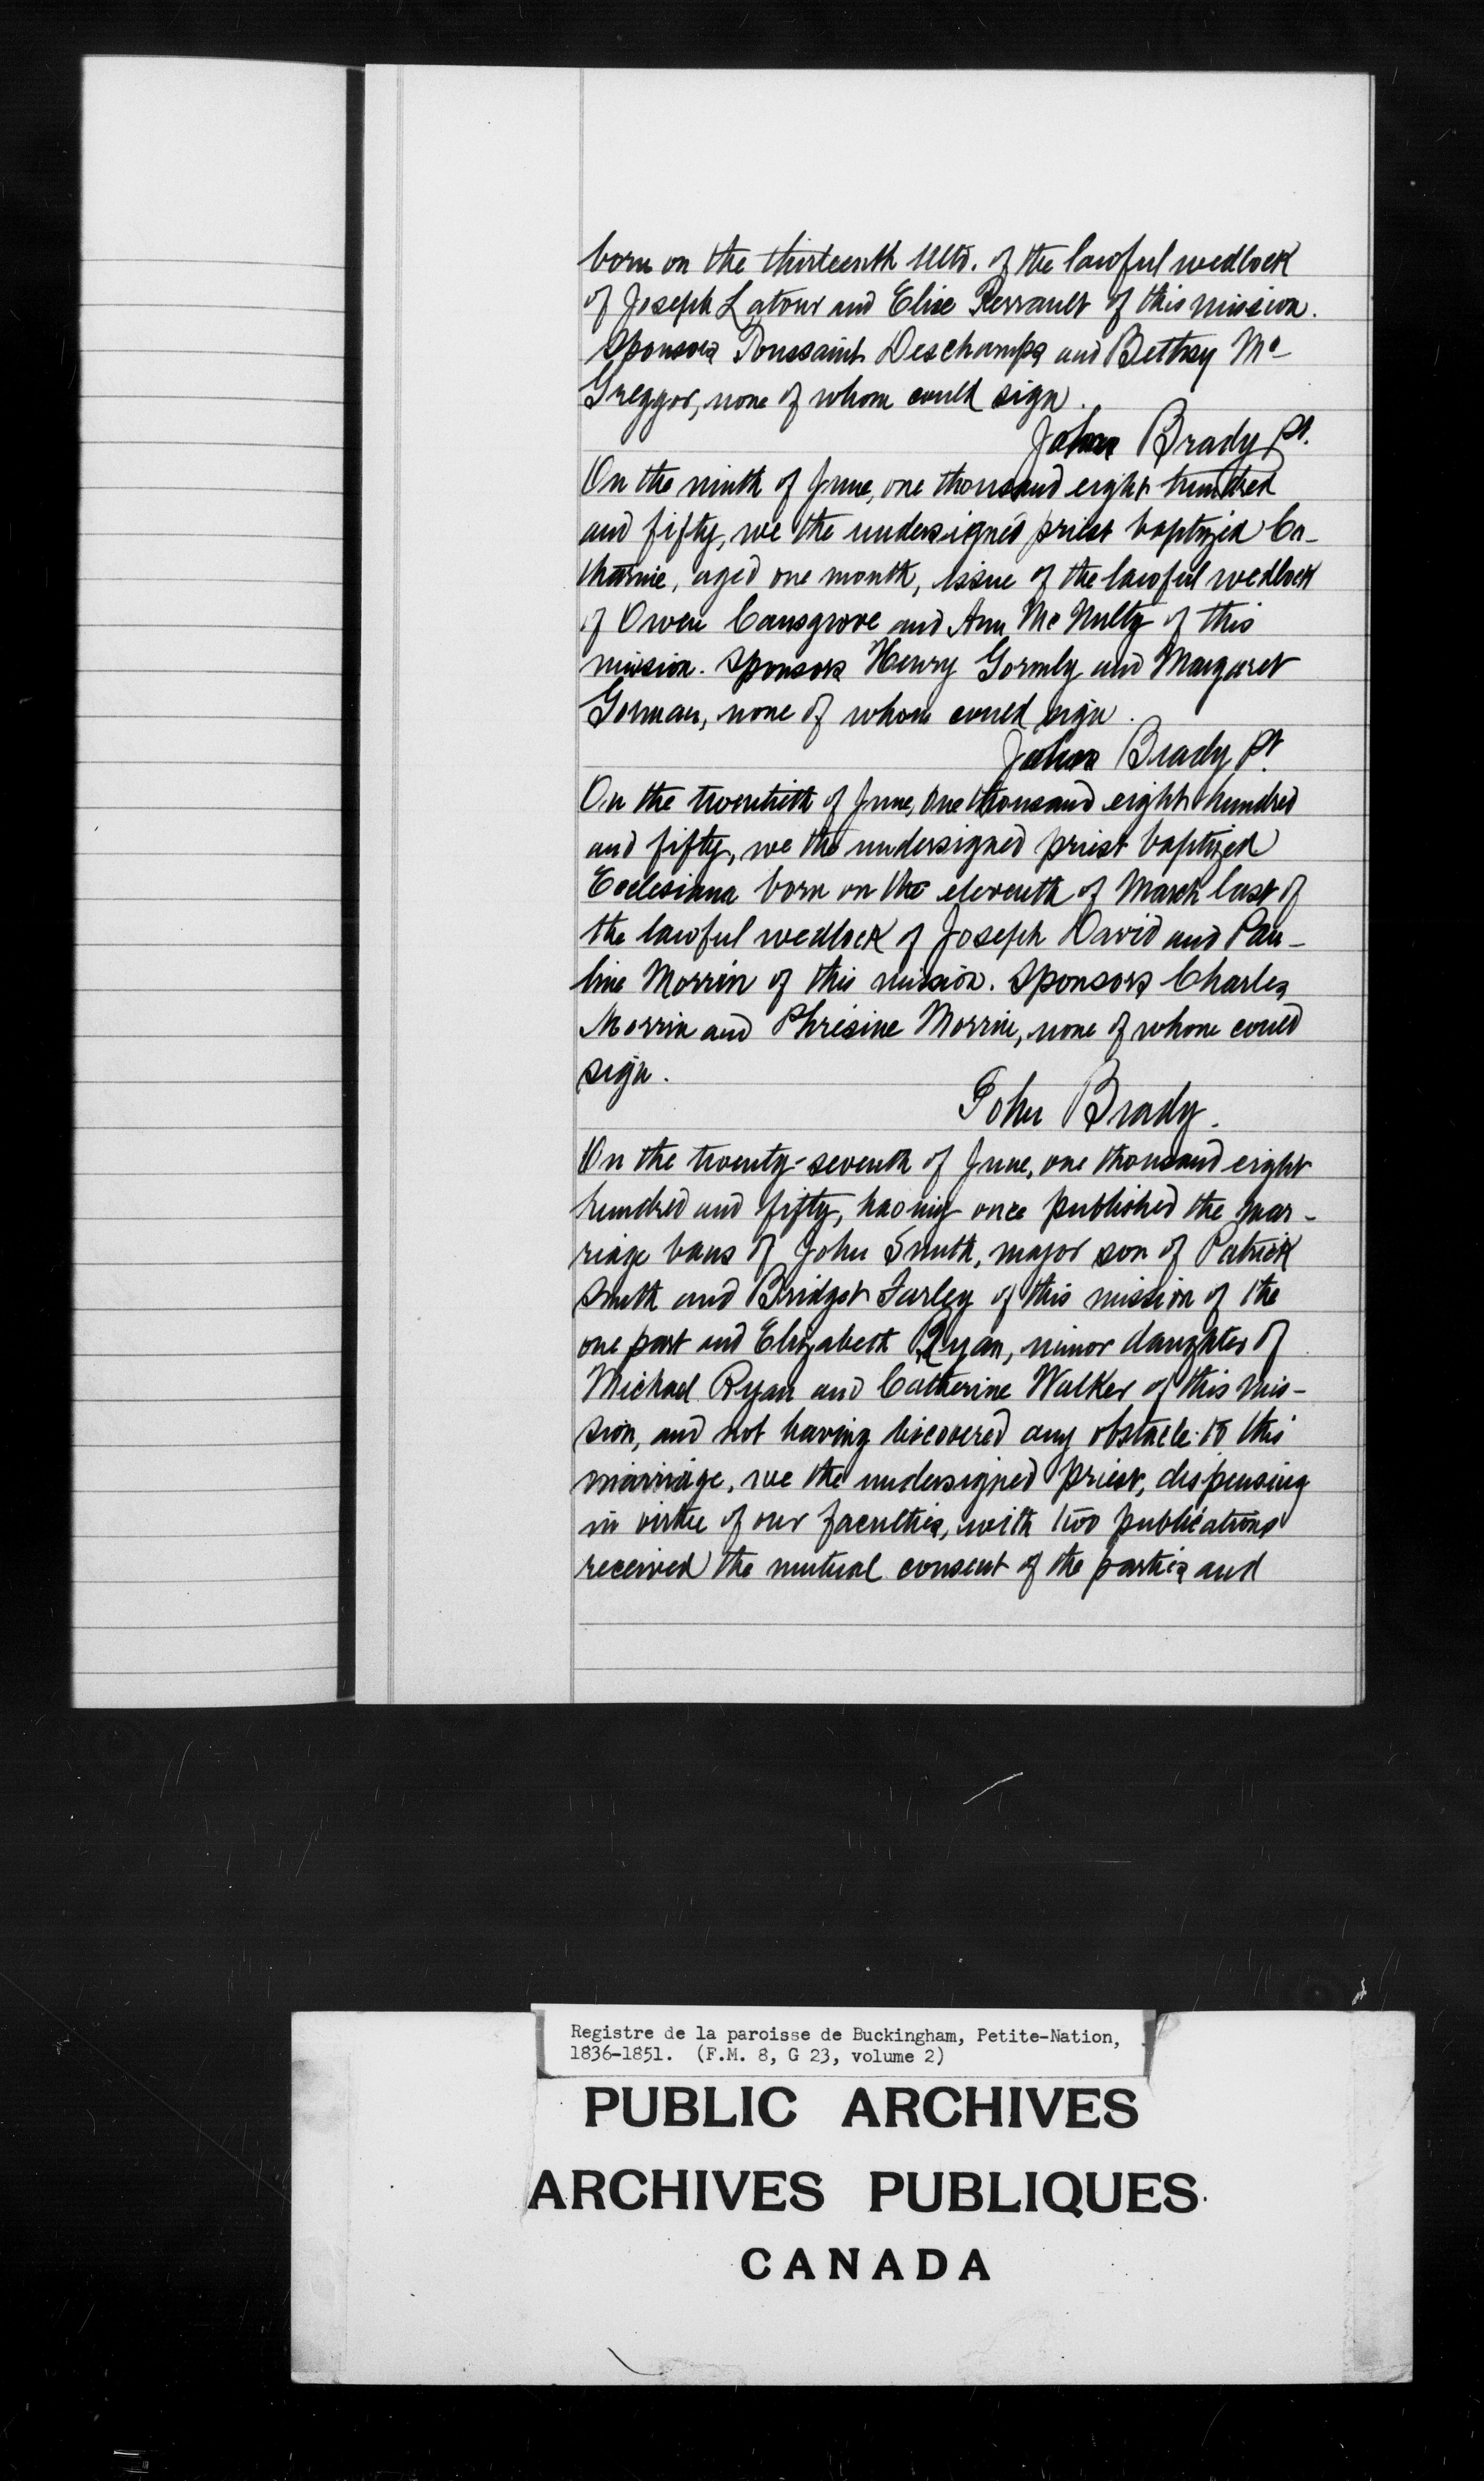 born on the thirteenth Ulto. of the lawful wedlock
of Joseph Latour and Elise Perrault of this mission.
Sponsors Toussaint Deschamps and Bethsy Mc-
Greggor, none of whom could sign.
John Brady Pt.
On the ninth of June, one thousand eight hundred
and fifty, we the undersigned priest baptized Ca-
tharine, aged one month, issue of the lawful wedlock
of Owen Cansgrove and Ann McNulty of this
mission. Sponsors Henry Gormly and Margaret
Gorman, none of whom could sign.
John Brady Pt.
On the twentieth of June, one thousand eight hundred
and fifty, we the undersigned priest baptized
Ecclesiana born on the eleventh of March last of
the lawful wedlock of Joseph David and Pau-
line Morrin of this mission. Sponsors Charles
Morrin and Phrésine Morrin, none of whom could
sign.
John Brady.
On the twenty-seventh of June, one thousand eight
hundred and fifty, having once published the mar-
riage bans of John Smith, major son of Patrick
Smith and Bridget Farley of this mission of the
one part and Elizabeth Ryan, minor daughter of
Michael Ryan and Catherine Walker of this mis-
sion, and not having discovered any obstacle to this
marriage, we the undersigned priest, dispensing
in virtue of our faculties, with two publications
received the mutual consent of the parties and
Registre de la paroisse de Buckingham, Petite-Nation,
1836-1851. (F.M. 8, G 23, volume 2)
PUBLIC ARCHIVES
ARCHIVES PUBLIQUES
CANADA